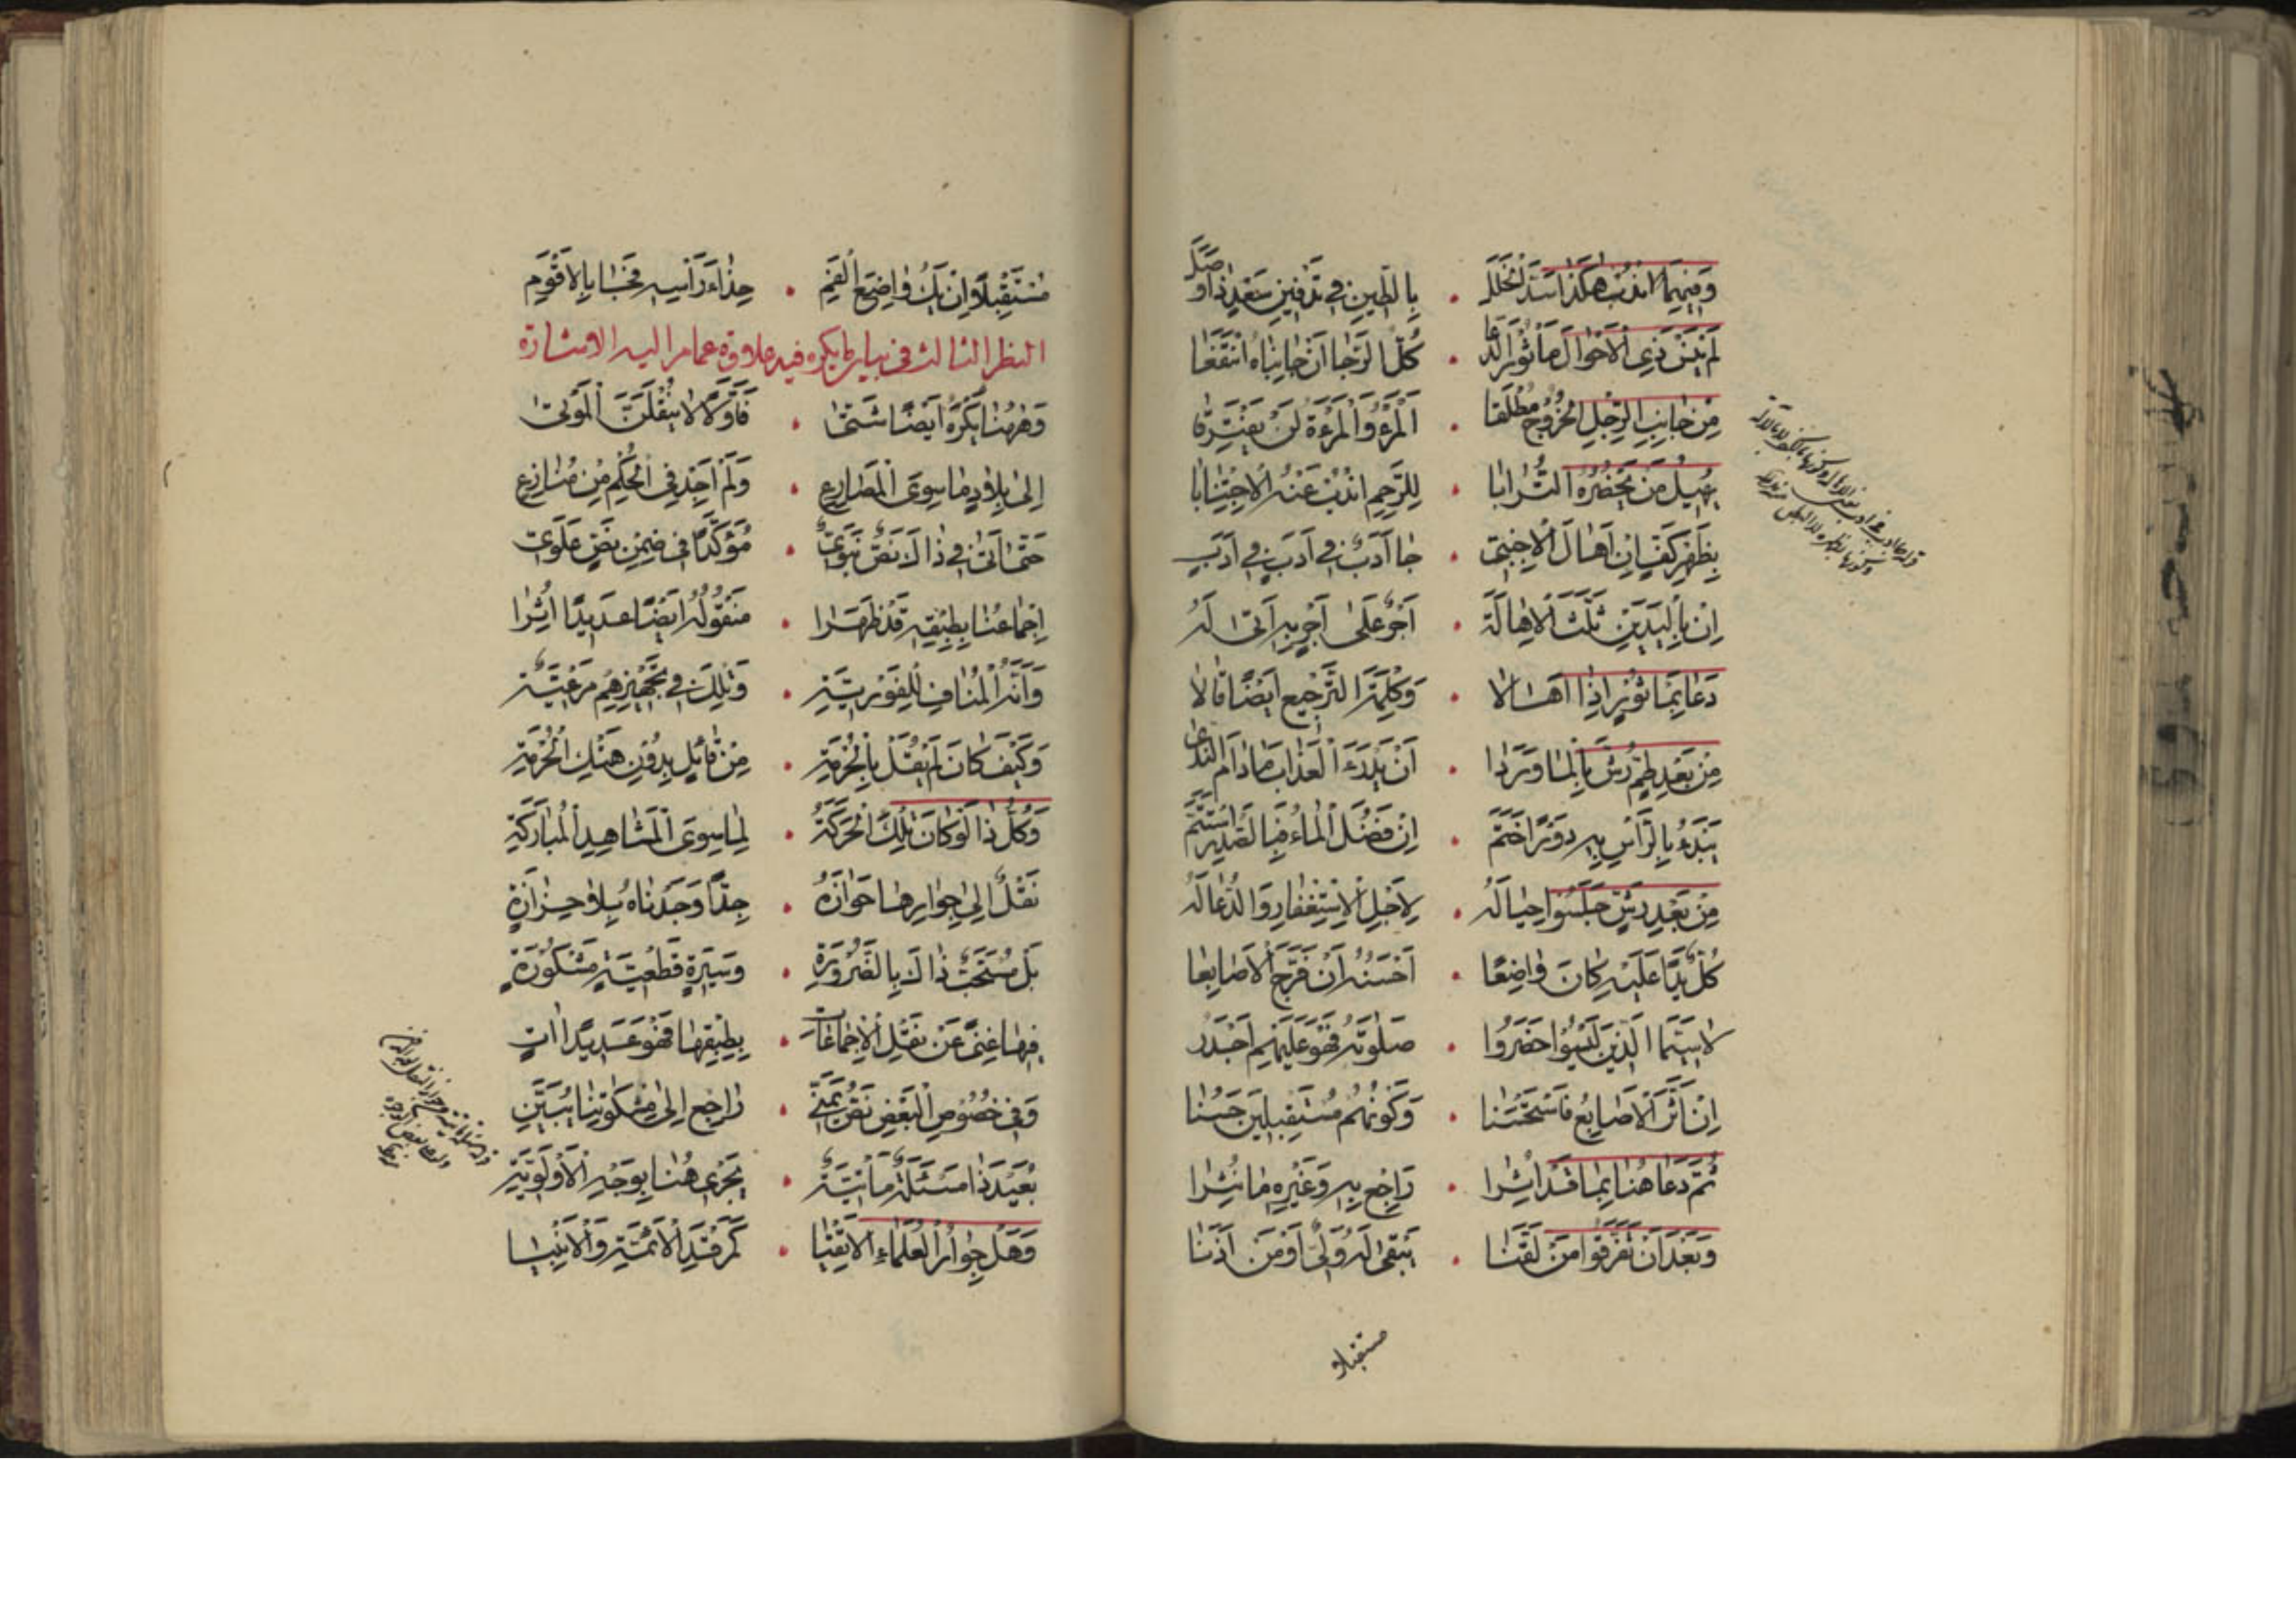 وَفِيهِمَا انْدُبْ هٰكَذَا سَدَّ الْخَلَلْ . بِالطِّينِ فِي تَدْفِينِ
لَمْ الْاَحْوَالِ مَأْثُورَ الدُّعَا . كُلًّا لِرَجَا اَنْ
مِنْ جَانِبِ الرِّجْلِ الْخُرُوجُ مُطْلَقَا . اَلْمَرْءُ وَالْمَرْءَةُ لَنْ يَفْتَرِقَا
يُهِيلُ مَنْ يَحْضُرُهُ التُّرَابَا . لِلرَّحِمِ انْدُبْ عَنْهُ الْاِجْتِنَابَا
بِظَهْرِ كَفٍّ اِنْ اَهَالَ الْاَجْنَبِيّ . جَا اَدَبٌ فِي اَدَبٍ فِي اَدَبِ
اِنْ بِالْيَدَيْنِ ثَلَّثَ الْاِهَالَةَ . اَجْرٌ عَلَى اَجْرٍ بِهِ اَتَى لَهُ
دَعَا بِمَأْثُورٍ اِذَا اَهَالَا . وَكَلِمَةَ التَّرْجِيعِ اَيْضًا قَالَا
مِنْ بَعْدِ طَمٍّ رُشَّ بِالْمَا وَرَدَا . اَنْ يُدْرَءَ الْعَذَابُ مَا دَامَ النَّدَى
يَبْدَءُ بِالرَّأْسِ بِهِ دَوْرًا خَتَمْ . اِنْ فَضَلَ الْمَاءُ فَبِالصَّدْرِ اسْتَتَمّ
مِنْ بَعْدِ رَشٍّ جَلَسُوا حِيَالَهُ . لِاَجْلِ الْاِسْتِغْفَارِ وَالدُّعَا لَهُ
كُلٌّ يَدًا عَلَيْهِ كَانَ وَاضِعًا . اَحْسَنُهُ اَنْ فَرَّجَ الْاَصَابِعَا
لَا سِيَّمَا الَّذِينَ لَيْسُوا حَضَرُوا . صَلٰوتَهُ فَهُوَ عَلَيْهِمْ اَجْدَرُ
اِنْ اَثَّرَ الْاَصَابِعُ فَاسْتَحْسَنَا . وَكَوْنُهُمْ مُسْتَقْبِلِينَ حَسُنَا
ثُمَّ دَعَا هُنَا بِمَا قَدْ اُثِرَا . رَاجِعْ بِهِ وَغَيْرِهِ مَا نُشِرَا
وَبَعْدَ اَنْ تَفَرَّقُوا مَنْ لَقَّنَا . يَبْقَى لَهُ وَلِيٌّ اَوْ مَنْ اَذِنَا
مستقبلا
مُسْتَقْبِلًا وَاِنْ يَكُ وَاضِعَ الْفَمِ . حِذَاءَ رَأْسِهِ فَخَابَا بِالْاَقْوَمِ
النظر الثالث في بيان ما يكره فيه علاوة عما مر اليه الاشارة
وَهٰهُنَا يُكْرَهُ اَيْضًا شَتّٰى . فَاَوَّلًا لَا يُنْقَلَنَّ الْمَوْتٰى
اِلٰى بِلَادٍ مَا سِوَى الْمَصَارِعِ . وَلَمْ اَجِدْ فِي الْحُكْمِ مِنْ مُنَازِعِ
حَتّٰى اَتٰى فِي ذَاكَ نَصٌّ نَبَوِيّ . مُؤَكَّدًا فِي ضِمْنِ نَصٍّ عَلَوِيّ
اِجْمَاعُنَا بِطِبْقِهِ قَدْ ظَهَرَا . مَنْقُولُهُ اَيْضًا عَدِيدًا اُثِرَا
وَاَنَّهُ الْمُنَافِ لِلْفَوْرِيَّةِ . وَتِلْكَ فِي تَجْهِيزِهِمْ مَرْعِيَّةٌ
وَكَيْفَ كَانَ لَمْ يُقَلْ بِالْحُرْمَةِ . مِنْ قَائِلٍ بِدُونِ هَتْكِ الْحُرْمَةِ
وَكُلُّ ذَا لَوْ كَانَ تِلْكَ الْحَرَكَةُ . لِمَا سِوَى الْمَشَاهِدِ الْمُبَارَكَةِ
نَقْلٌ اِلٰى جِوَارِهَا جَوَازَهُ . جِدًّا وَجَدْنَاهُ بِلَا حَزَازَةٍ
بَلْ مُسْتَحَبٌّ ذَاكَ بِالضَّرُورَةِ . وَسِيرَةٍ قَطْعِيَّةٍ مَشْكُورَةٍ
فِيهَا غِنًى عَنْ نَقْلِ الْاِجْمَاعَاتِ . بِطِبْقِهَا فَهُوَ عَدِيدًا اٰتٍ
وَفِي خُصُوصِ الْبَعْضِ نَصٌّ . رَاجِعْ اِلٰى مِشْكٰوتِنَا
بُعَيْدَ ذَا مَسْئَلَةٌ مَأْتِيَّةٌ . يَجْرِي هُنَا بِوَجْهِ الْاَوْلَوِيَّةِ
وَهَلْ جِوَارُ الْعُلَمَاءِ الْاَتْقِيَا . كَمَرْقَدِ الْاَئِمَّةِ وَالْاَنْبِيَا